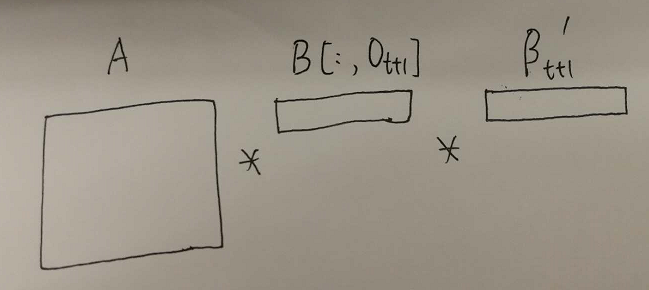 A B[:, O_{t+1}] β'_{t+1}
* *